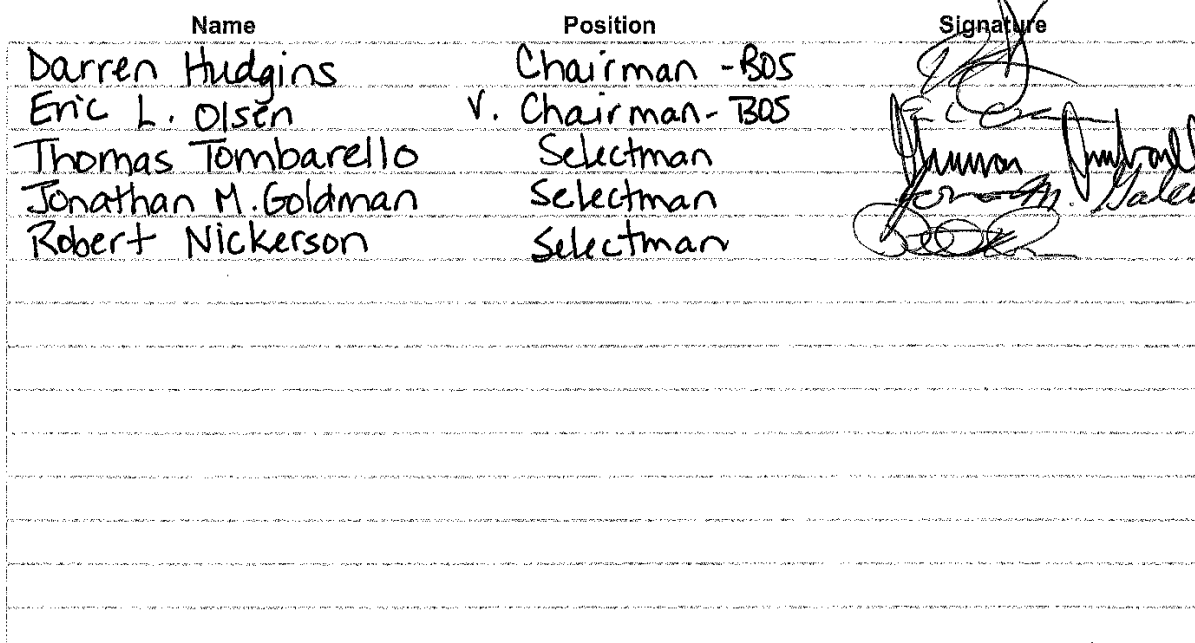 Name Position Signature
Darren Hudgins Chairman - BOS
Eric L. Olsen V. Chairman - BOS
Thomas Tombarello Selectman
Jonathan M. Goldman Selectman
Robert Nickerson Selectman